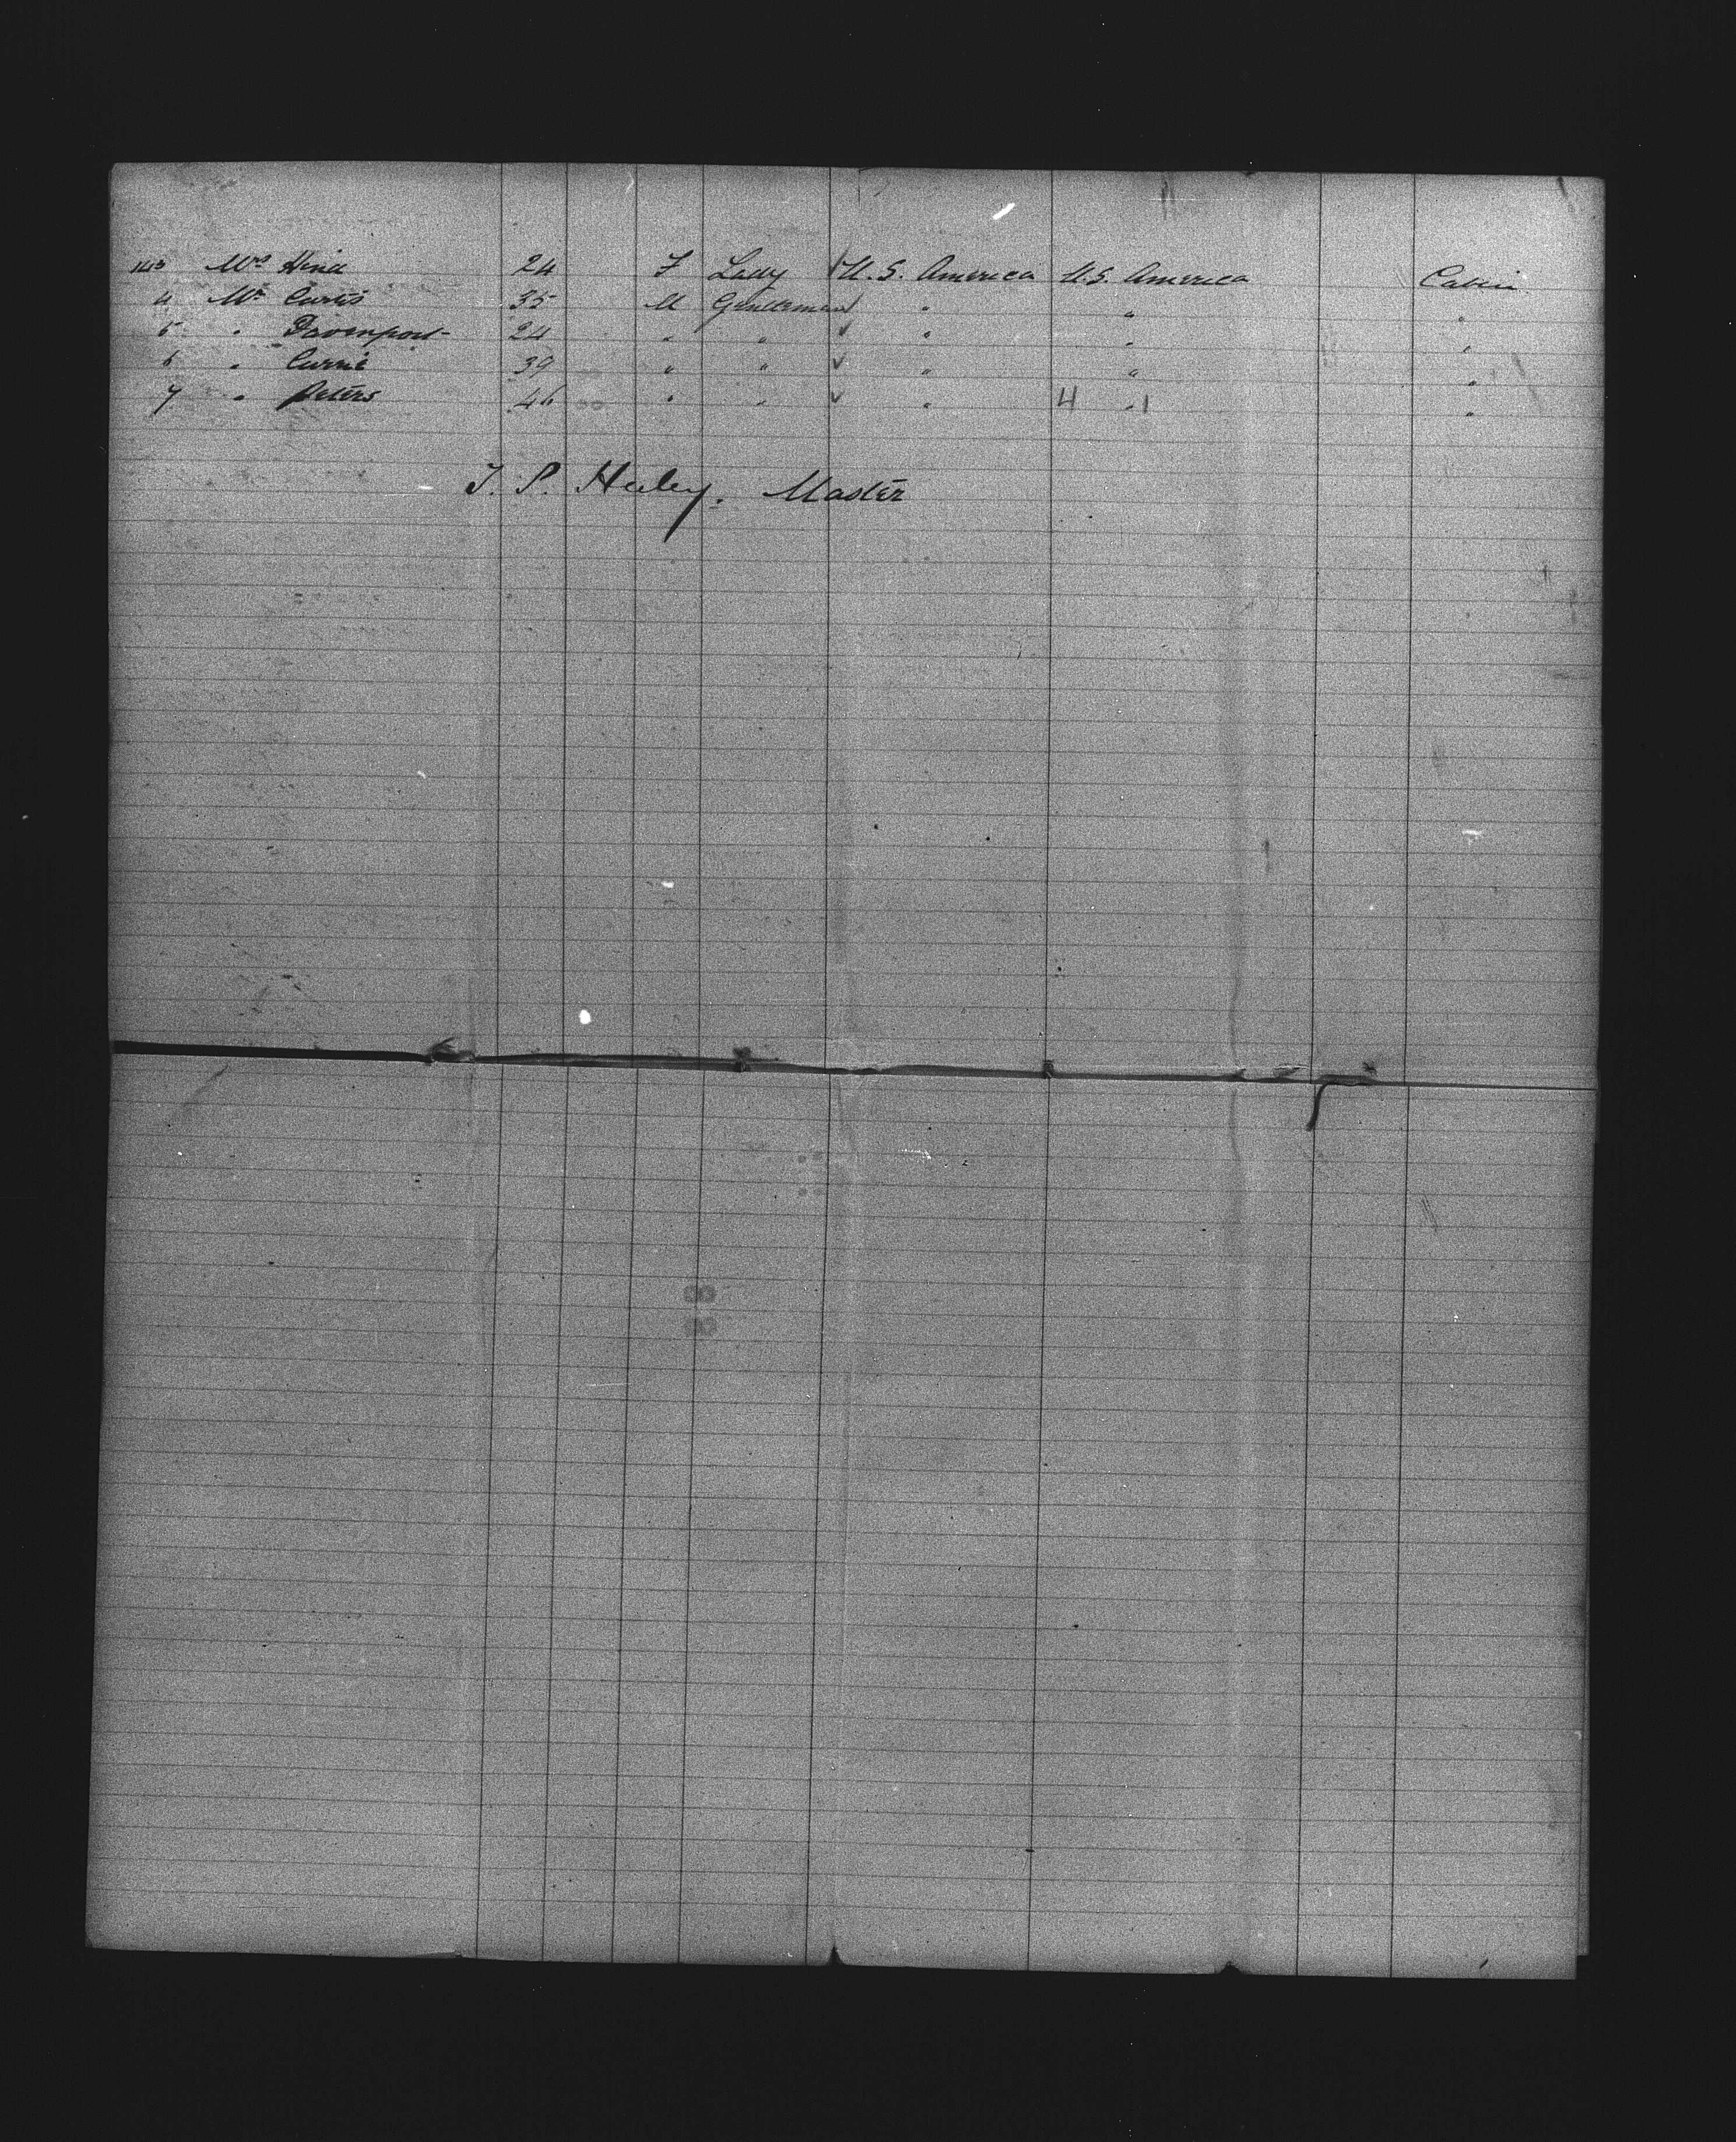 143 Mrs Hind 24 F Lady U.S. America U.S. America Cabin
4 Mr Curtis 35 M Gentleman " " "
5 " Davenport 24 " " " " "
6 " Currie 39 " " " " "
7 " Peters 46 " " " 4 " 1 "
Master